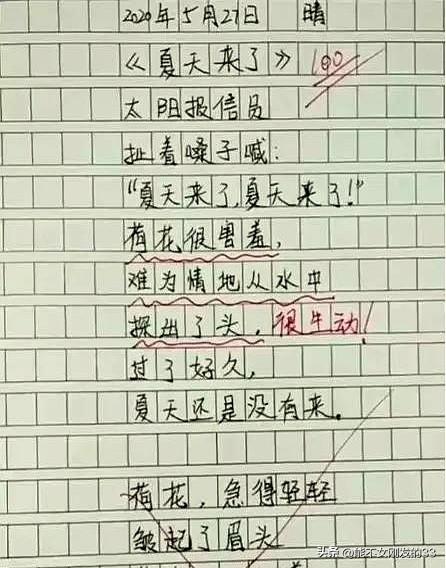 2020年5月27日 晴
《夏天来了》 100
太阳报信员
扯着嗓子喊:
“夏天来了,夏天来了!”
荷花很害羞,
难为情地从水中
探出了头, 很生动!
过了好久,
夏天还是没有来。
荷花,急得轻轻
皱起了眉头